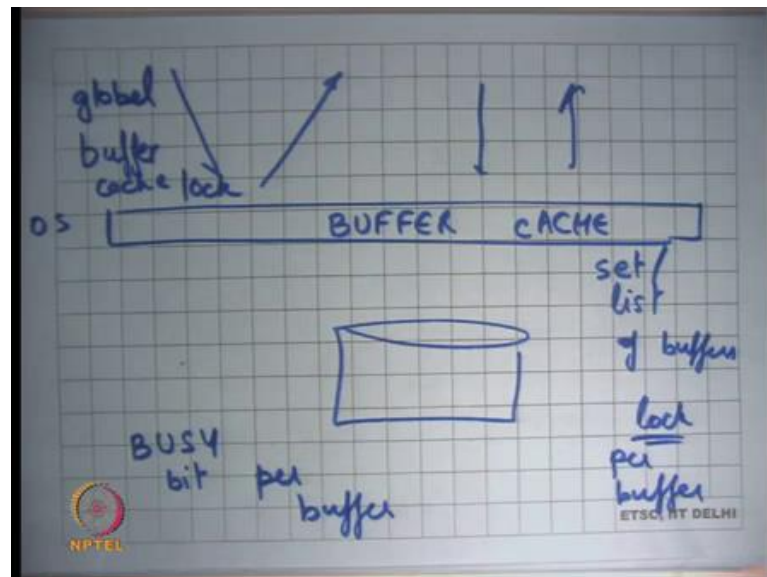 global
buffer
cache lock
OS
BUFFER CACHE
set/
list
of buffers
lock
per
buffer
BUSY
bit per
buffer
NPTEL
ETSC, IIT DELHI